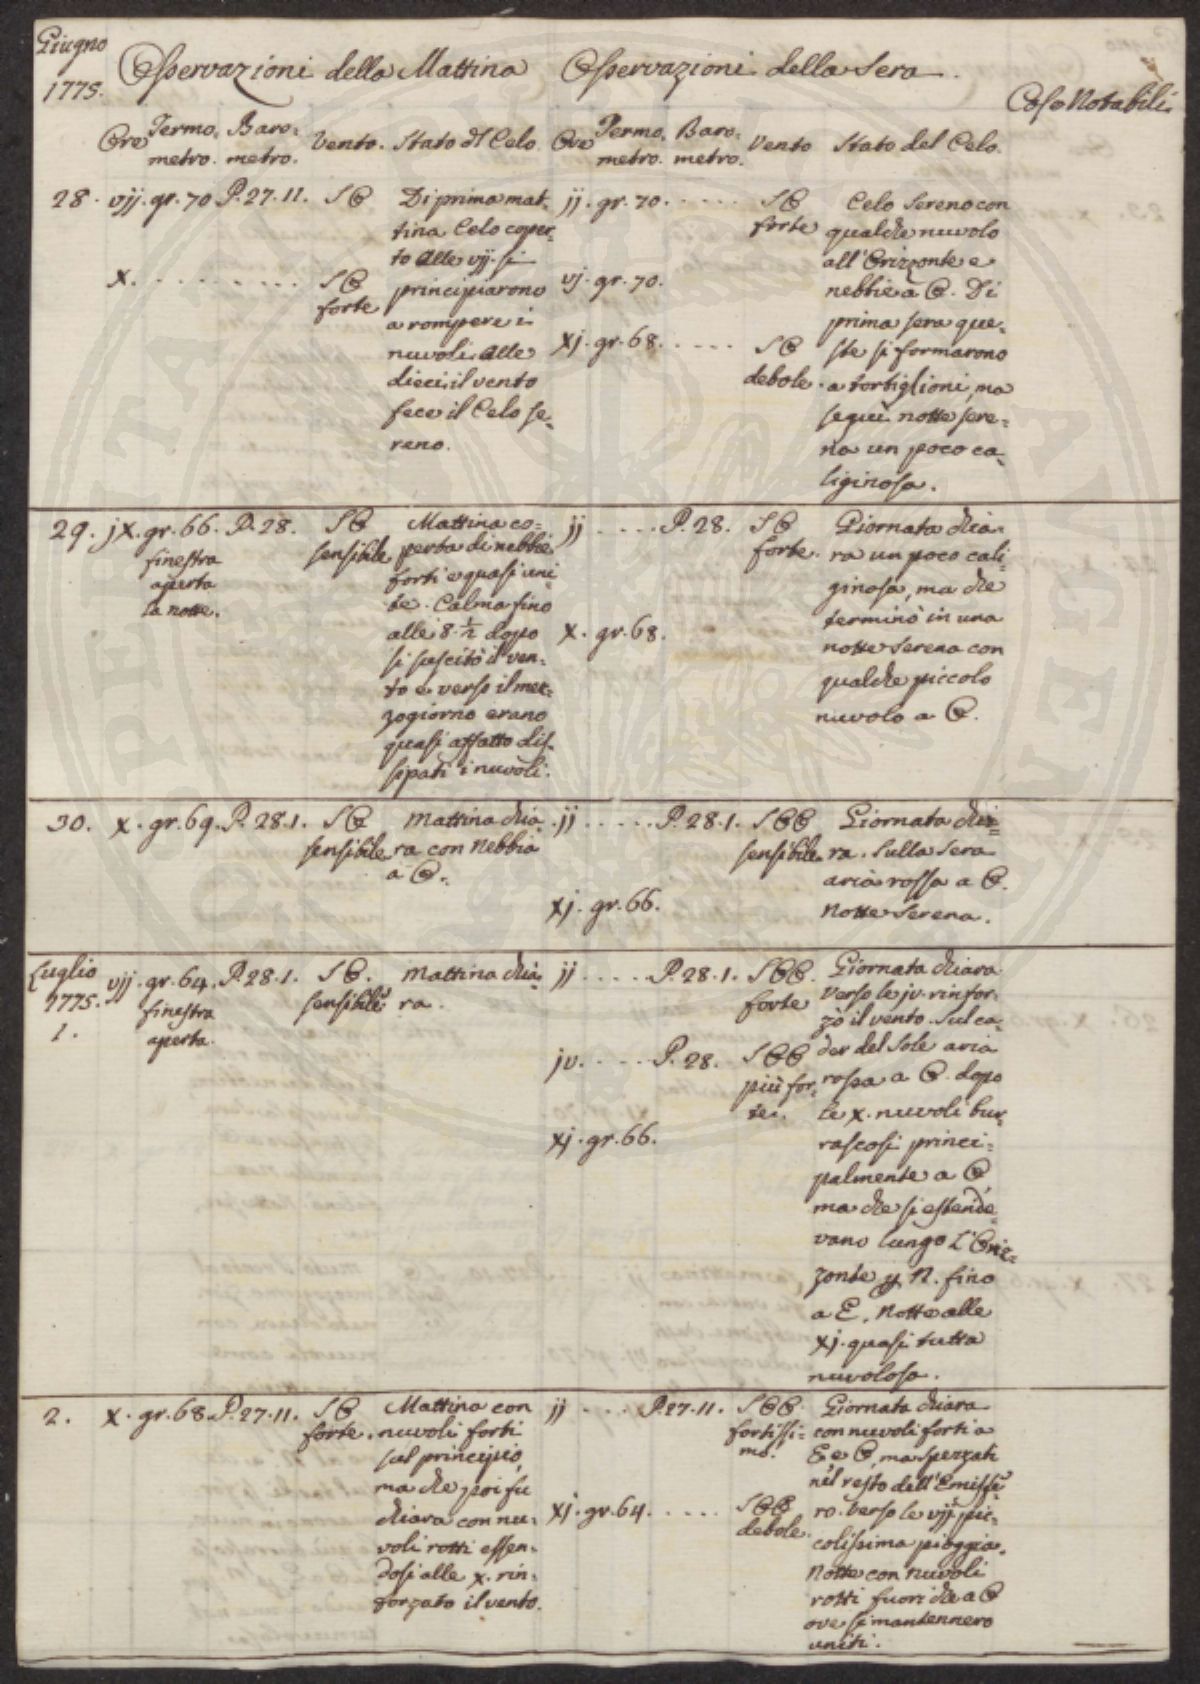 Giugno
1775.
Osservazioni della Mattina
Osservazioni della Sera.
Cose Notabili
Ore
Termo:
metro.
Baro:
metro.
Vento.
Stato del Celo
Ore
Termo:
metro.
Baro:
metro.
Vento
Stato del Celo.
28. vij. gr. 70 P. 27. 11. S O
Di prima mat:
tina Celo coper:
to Alle vij. si
principiarono
a rompere i
nuvoli. Alle
dieci, il vento
fece il Celo se:
reno.
x. . . . . . . . . S O
forte
ij. gr. 70. . . . . . S O
forte
vj. gr. 70.
xj. gr. 68. . . . . . S O
debole.
Celo Sereno con
qualche nuvolo
all'Orizzonte e
nebbie a O. Di
prima sera que:
ste si formarono
a tortiglioni, ma
seguì notte sere:
na un poco ca:
liginosa.
29. jx. gr. 66. P. 28. S O
sensibile
finestra
aperta
la notte.
Mattina co:
perta di nebbie
forti e quasi uni:
te. Calma fino
alle 8. ½ dopo
si suscitò il ven:
to e verso il mez:
zogiorno erano
quasi affatto dis:
sipati i nuvoli.
ij . . . . P. 28. S O
forte.
x. gr. 68.
Giornata chia:
ra un poco cali:
ginosa, ma che
terminò in una
notte serena con
qualche piccolo
nuvolo a O.
30. x. gr. 69. P. 28. 1. S O
sensibile
Mattina chia:
ra con Nebbia
a O.
ij . . . . . P. 28. 1. S O O
sensibile
xj. gr. 66.
Giornata chia:
ra. Sulla Sera
aria rossa a O.
Notte Serena.
Luglio
1775.
1.
vij. gr. 64. P. 28. 1. S O.
sensibile
finestra
aperta.
Mattina chia:
ra.
ij . . . . . P. 28. 1. S O O.
forte
jv. . . . . P. 28. S O O
più for:
te.
xj. gr. 66.
Giornata chiara
Verso le jv. rinfor:
zò il vento. Sul ca:
der del Sole aria
rossa a O. dopo
le x. nuvoli bur:
rascosi princi:
palmente a O
ma che si estende:
vano lungo l'Oriz:
zonte p N. fino
a E. Notte alle
xj. quasi tutta
nuvolosa.
2. x. gr. 68. P. 27. 11. S O
forte.
Mattina con
nuvoli forti
sul principio,
ma che poi fu
chiara con nu:
voli rotti essen:
dosi alle x. rin:
forzato il vento.
ij . . . P. 27. 11. S O O.
fortissi:
mo.
xj. gr. 64. . . . . S O O
debole.
Giornata chiara
con nuvoli forti a
E e O, ma spezzati
nel resto dell'Emisfe:
ro. Verso le vij pic:
colissima pioggia.
Notte con nuvoli
rotti fuori che a O
ove si mantennero
uniti.